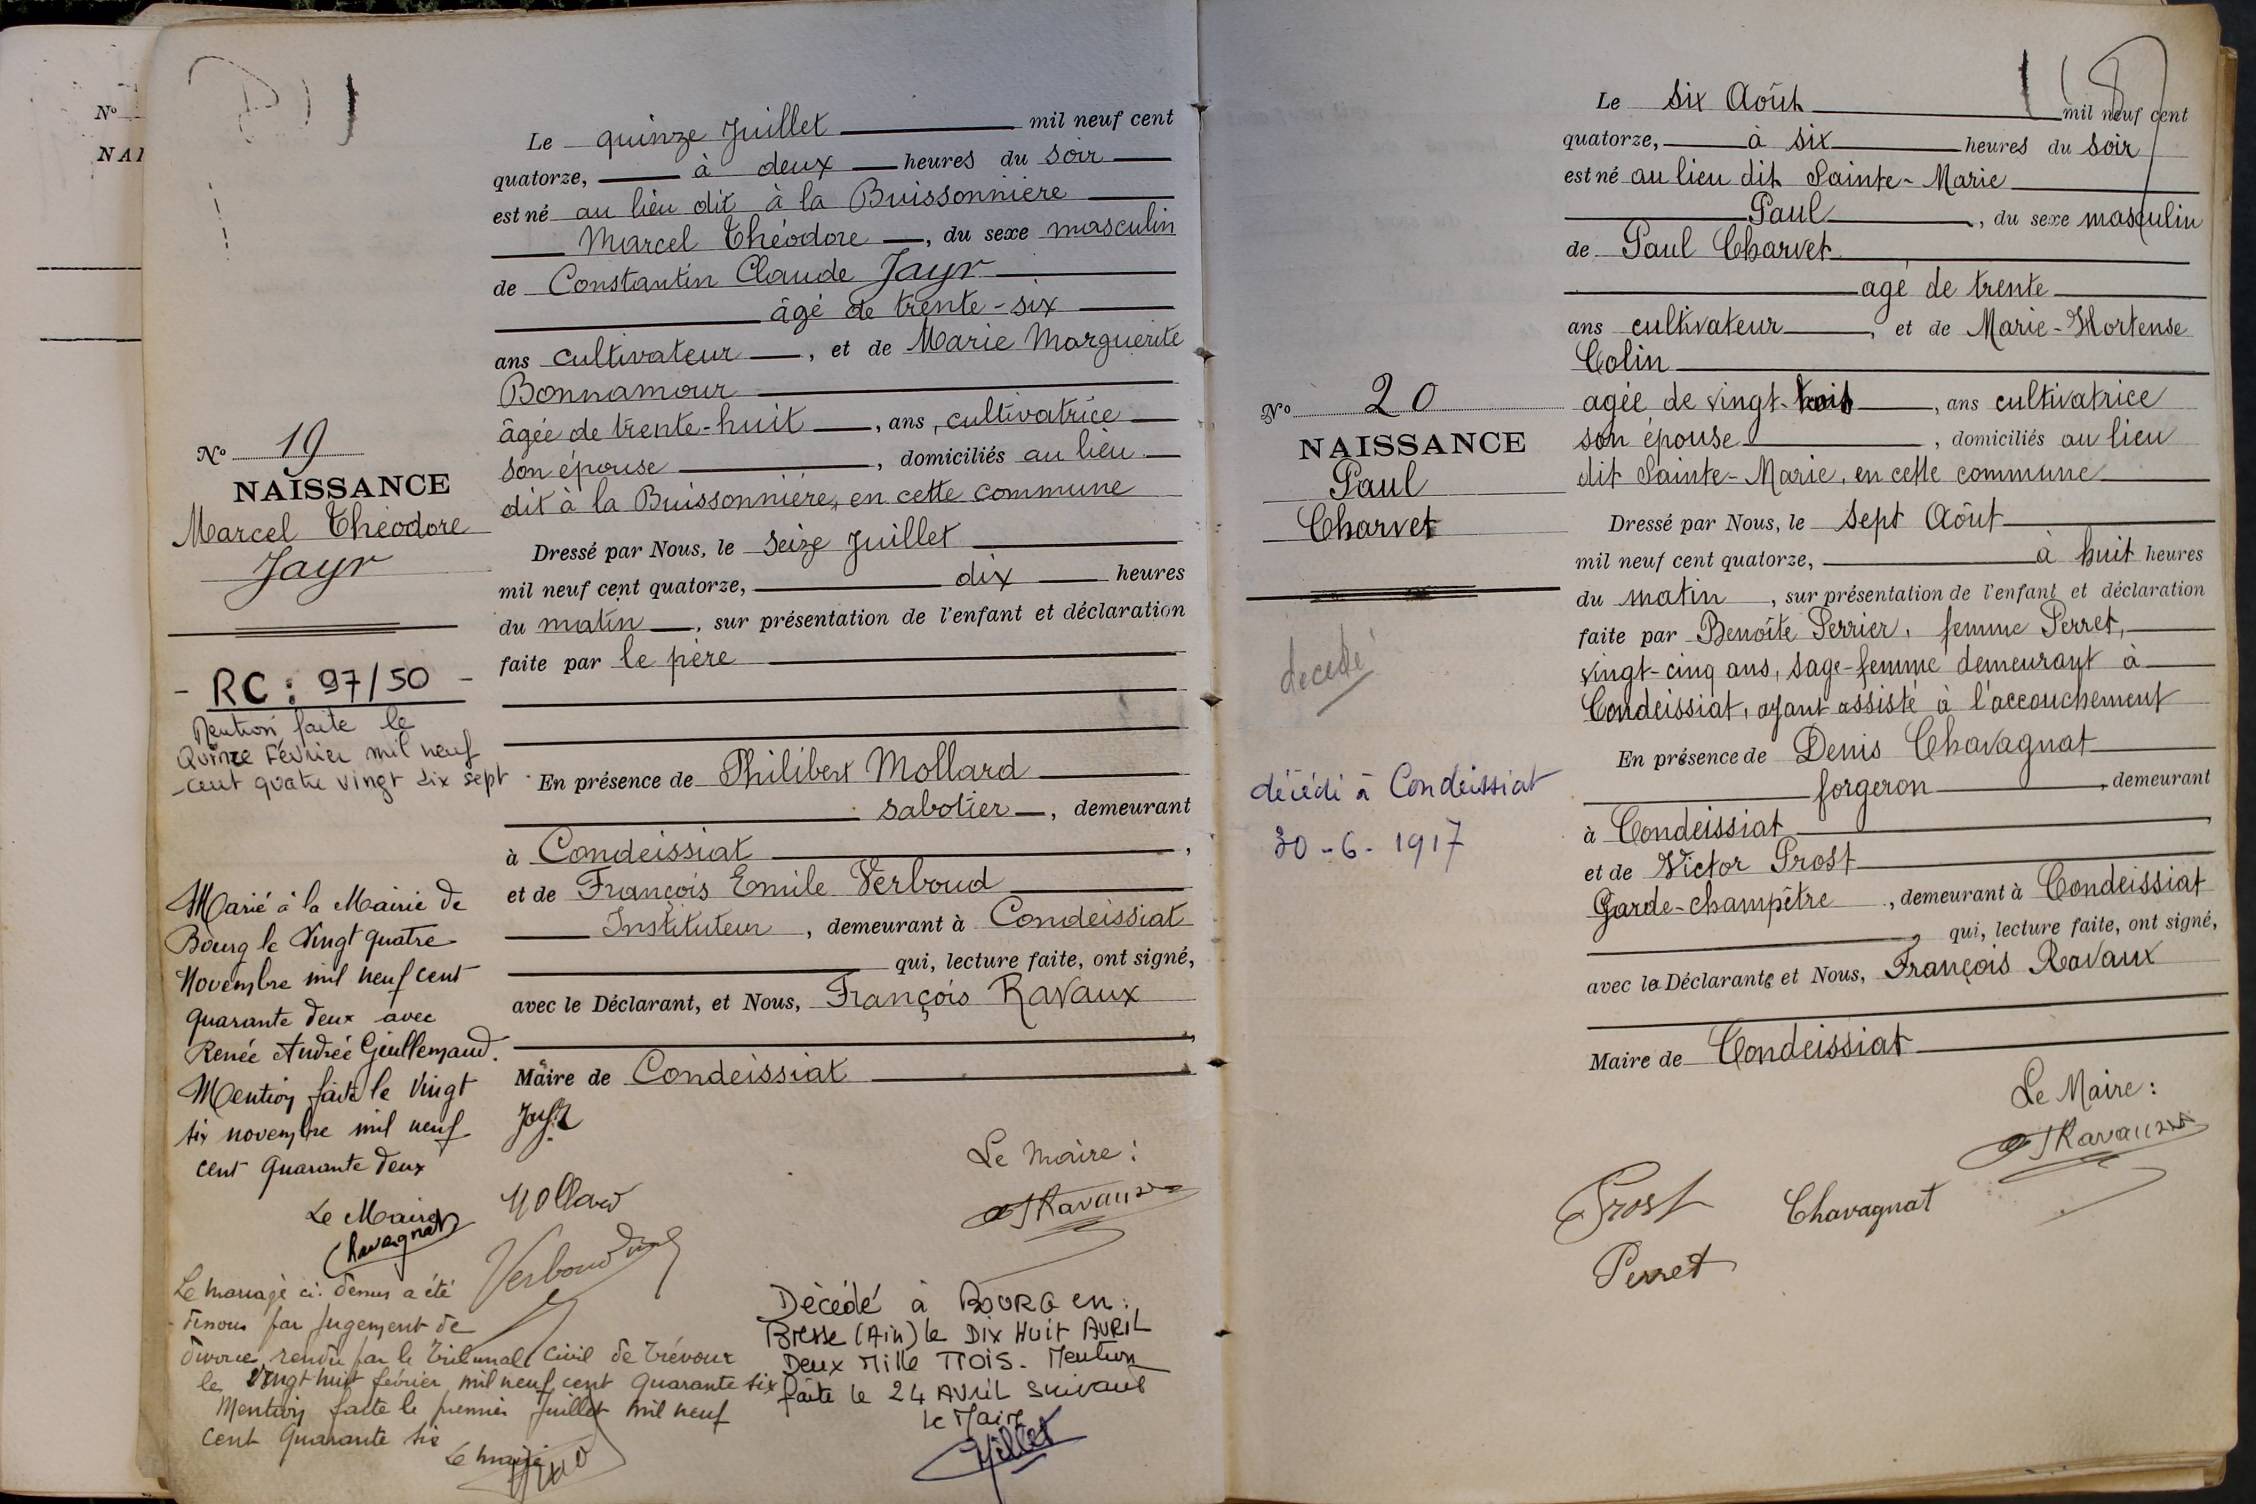 Nº
NAI
Nº 19
NAISSANCE
Marcel Théodore
Jayr
- RC : 97/50 -
Mention faite le
Quinze Février mil neuf
cent quatre vingt dix sept
Marié à la Mairie de
Bourg le Vingt quatre
Novembre mil neuf cent
quarante deux avec
Renée Andrée Guillemaud.
Mention faite le Vingt
six novembre mil neuf
cent quarante deux
Le Maire
Chavagnat
Le mariage ci-dessus a été
dissous par jugement de
divorce rendu par le Tribunal Civil de Trévoux
le Vingt huit février mil neuf cent quarante six
Mention faite le premier Juillet mil neuf
cent quarante six
Le maire
Le quinze Juillet mil neuf cent
quatorze, à deux heures du soir
est né au lieu dit à la Buissonnière
Marcel Théodore, du sexe masculin
de Constantin Claude Jayr
âgé de trente-six
ans cultivateur, et de Marie Marguerite
Bonnamour
âgée de trente-huit, ans, cultivatrice
son épouse, domiciliés au lieu
dit à la Buissonnière, en cette commune
Dressé par Nous, le seize Juillet
mil neuf cent quatorze, dix heures
du matin, sur présentation de l'enfant et déclaration
faite par le père
En présence de Philibert Mollard
sabotier, demeurant
à Condeissiat,
et de François Emile Verboud
Instituteur, demeurant à Condeissiat
qui, lecture faite, ont signé,
avec le Déclarant, et Nous, François Ravaux
Maire de Condeissiat
Jayr
Mollard
Verboud
Le Maire :
F Ravaux
Décédé à BOURG en
Bresse (Ain) le DIX HUIT AVRIL
DEUX MILLE TROIS. Mention
faite le 24 AVRIL suivant
Le Maire
Nº 20
NAISSANCE
Paul
Charvet
decedé
décédé à Condeissiat
30-6-1917
Le six Août mil neuf cent
quatorze, à six heures du soir
est né au lieu dit Sainte-Marie
Paul, du sexe masculin
de Paul Charvet
agé de trente
ans cultivateur, et de Marie-Hortense
Colin
agée de vingt-trois, ans cultivatrice
son épouse, domiciliés au lieu
dit Sainte-Marie, en cette commune
Dressé par Nous, le sept Août
mil neuf cent quatorze, à huit heures
du matin, sur présentation de l'enfant et déclaration
faite par Benoîte Perrier, femme Perret,
vingt-cinq ans, sage-femme demeurant à
Condeissiat, ayant assisté à l'accouchement
En présence de Denis Chavagnat
forgeron, demeurant
à Condeissiat,
et de Victor Prost
Garde-champêtre, demeurant à Condeissiat
, qui, lecture faite, ont signé,
avec la Déclarante et Nous, François Ravaux
Maire de Condeissiat
Le Maire :
F Ravaux
Prost
Chavagnat
Perret